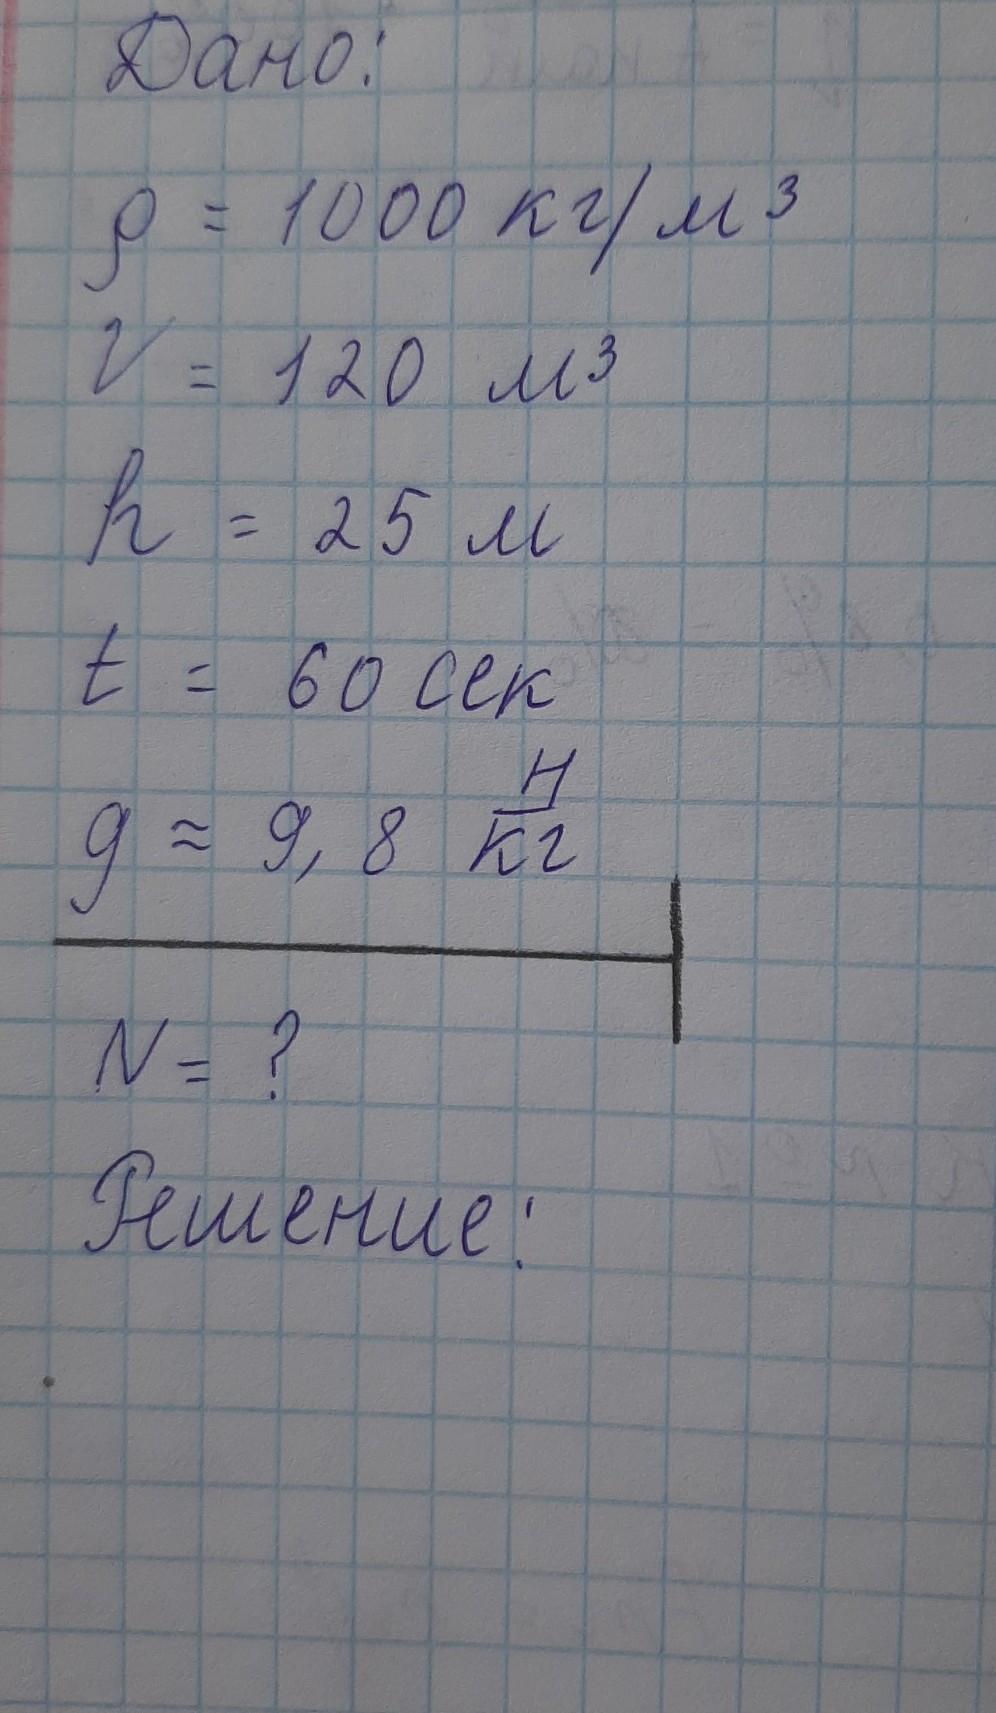 Дано:
ρ = 1000 кг/м³
V = 120 м³
h = 25 м
t = 60 сек
g ≈ 9,8 Н/кг
N = ?
Решение: